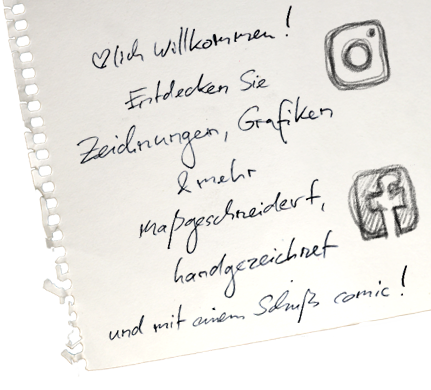 ♡lich willkommen!
Entdecken Sie
Zeichnungen, Grafiken
& mehr
maßgeschneidert,
handgezeichnet
und mit einem Schuß comic!